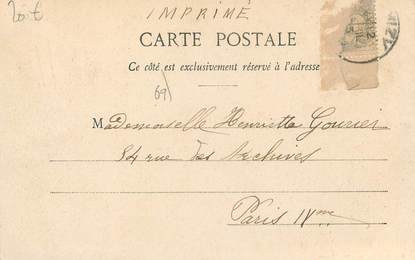 20. €
IMPRIMÉ
CARTE POSTALE
Ce côté est exclusivement réservé à l'adresse
69
Mademoiselle Henriette Gourier
84 rue des Archives
Paris IVme